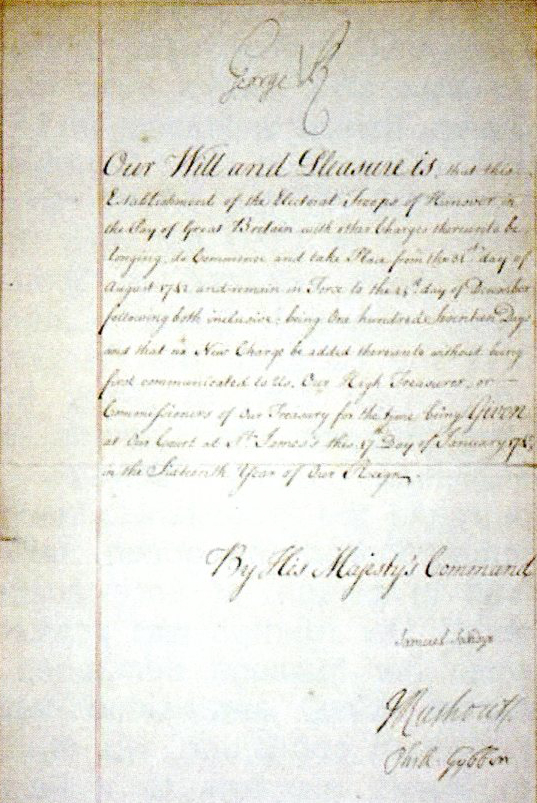 George R
Our Will and Pleasure is, that this
Establishment of the Electoral Troops of Hanover in
the Pay of Great Britain with other Charges thereunto be
longing, do Commence and take Place from the 31st day of
August 1742 and remain in Force to the day of December
following both inclusive; being One hundred Days
and that no New Charge be added thereunto without being
first communicated to Us, Our High Treasurer, or
Commissioners of Our Treasury for the time being Given
at Our Court at St. James's this 17th Day of January
in the Sixteenth Year of Our Reign.
By His Majesty's Command
Samuel Sandys
J Rushout
Phil. Gybbon